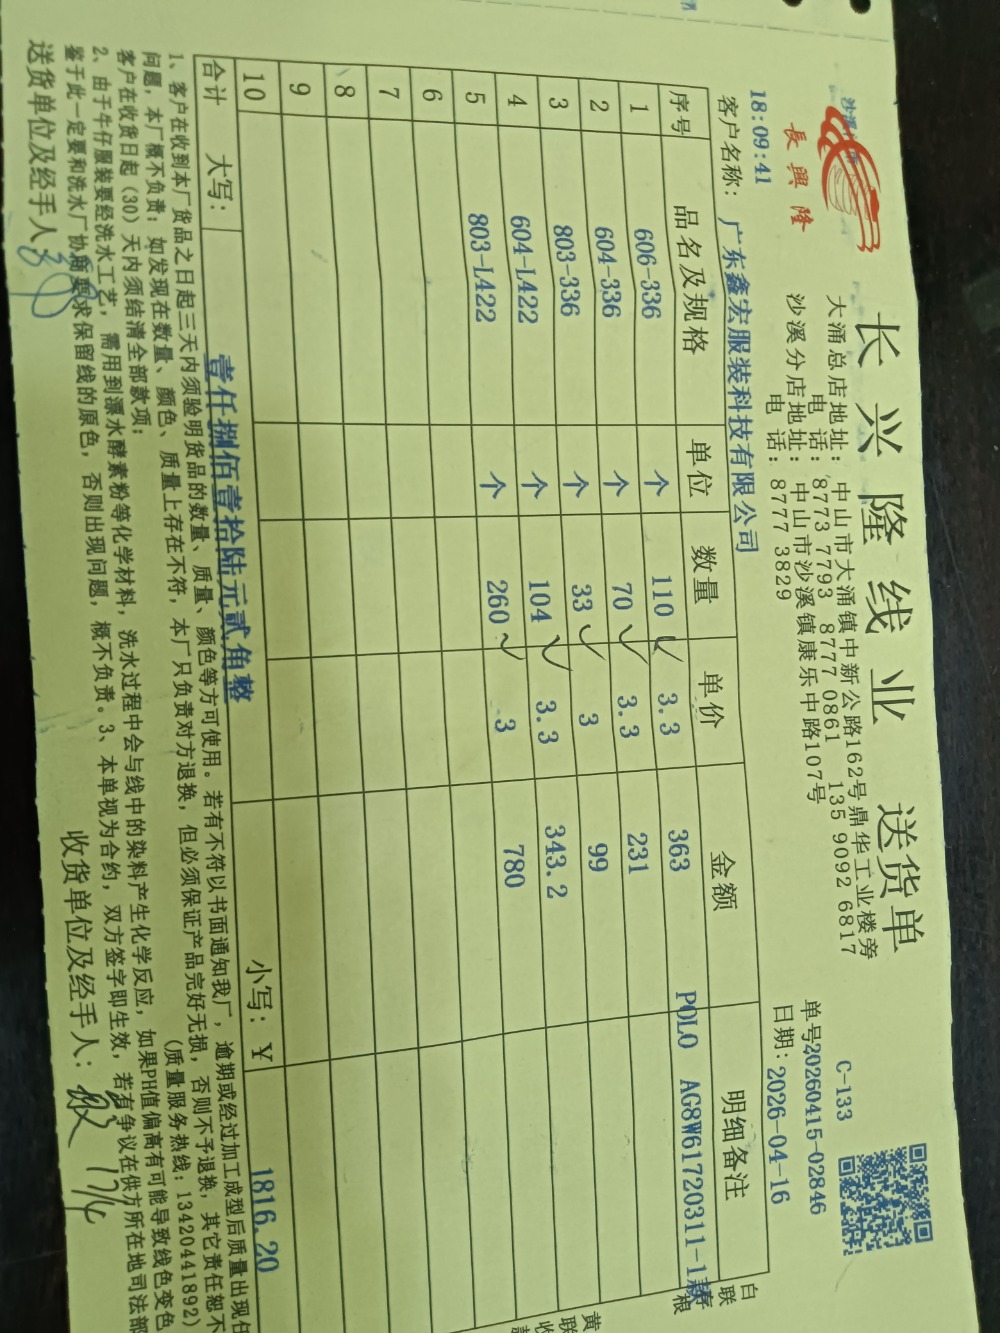 长兴隆线业 送货单
長興隆
大涌总店地址：中山市大涌镇中新公路162号鼎华工业楼旁
电 话：8773 7793 8777 0861 135 9092 6817
沙溪分店地址：中山市沙溪镇康乐中路107号
电 话：8777 3829
C-133
单号20260415-02846
日期：2026-04-16
18:09:41
客户名称：广东鑫宏服装科技有限公司
序号 品名及规格 单位 数量 单价 金额 明细备注
1 606-336 个 110 3.3 363 POLO AG8W61720311-1款
2 604-336 个 70 3.3 231
3 803-336 个 33 3 99
4 604-L422 个 104 3.3 343.2
5 803-L422 个 260 3 780
6
7
8
9
10
合计 大写：壹仟捌佰壹拾陆元贰角整 小写：¥ 1816.20
白联
存根
黄联
1、客户在收到本厂货品之日起三天内须验明货品的数量、质量、颜色等方可使用。若有不符以书面通知我厂，逾期或经过加工成型后质量出现任
问题，本厂概不负责；如发现在数量、颜色、质量上存在不符，本厂只负责对方退换，但必须保证产品完好无损，否则不予退换，其它责任恕不
客户在收货日起（30）天内须结清全部款项； （质量服务热线：13420441892）
2、由于牛仔服装要经洗水工艺，需用到漂水酵素粉等化学材料，洗水过程中会与线中的染料产生化学反应，如果PH值偏高有可能导致线色变色
鉴于此一定要和洗水厂协商要求保留线的原色，否则出现问题，概不负责。3、本单视为合约，双方签字即生效，若有争议在供方所在地司法部
送货单位及经手人： 收货单位及经手人： 17/4